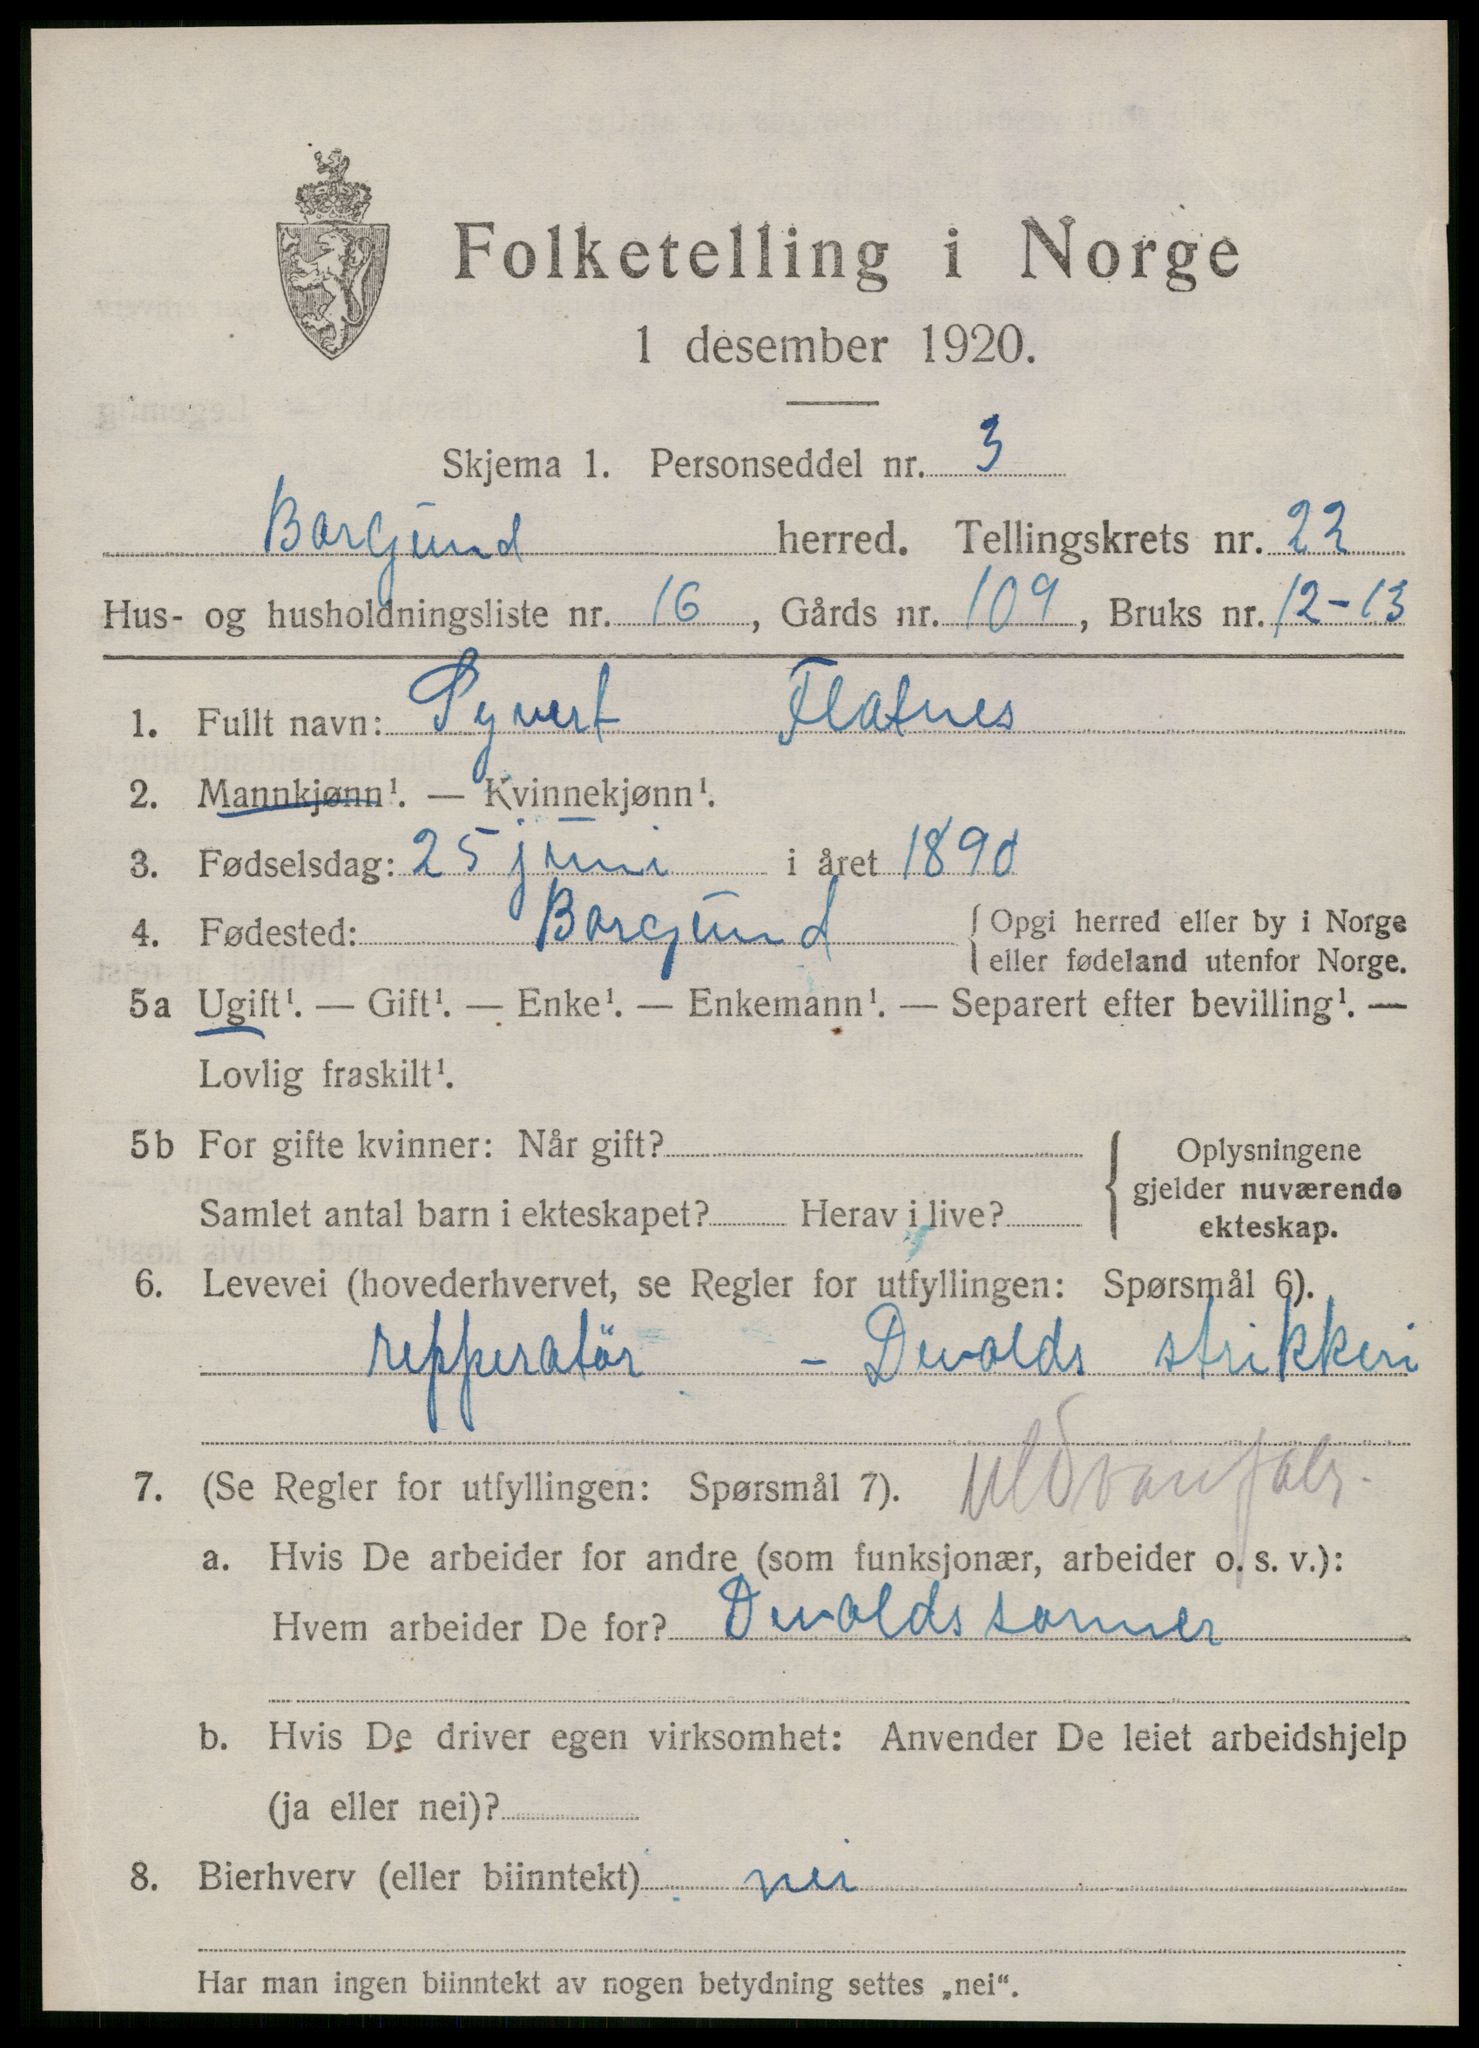 Folketelling i Norge
1 desember 1920.
Skjema 1. Personseddel nr. 3
Borgund herred. Tellingskrets nr. 22
Hus- og husholdningsliste nr. 16, Gårds nr. 109, Bruks nr. 12-13
1. Fullt navn: Syvert Flatnes
2. Mannkjønn¹. — Kvinnekjønn¹.
3. Fødselsdag: 25 juni i året 1890
4. Fødested: Borgund { Opgi herred eller by i Norge
eller fødeland utenfor Norge.
5a Ugift¹. — Gift¹. — Enke¹. — Enkemann¹. — Separert efter bevilling¹. —
Lovlig fraskilt¹.
5b For gifte kvinner: Når gift?
Samlet antal barn i ekteskapet? Herav i live?
{ Oplysningene
gjelder nuværende
ekteskap.
6. Levevei (hovederhvervet, se Regler for utfyllingen: Spørsmål 6).
repperatör - Devolds strikkeri
7. (Se Regler for utfyllingen: Spørsmål 7). Uldvarefabr.
a. Hvis De arbeider for andre (som funksjonær, arbeider o. s. v.):
Hvem arbeider De for? Devolds sønner
b. Hvis De driver egen virksomhet: Anvender De leiet arbeidshjelp
(ja eller nei)?
8. Bierhverv (eller biinntekt) nei
Har man ingen biinntekt av nogen betydning settes „nei“.